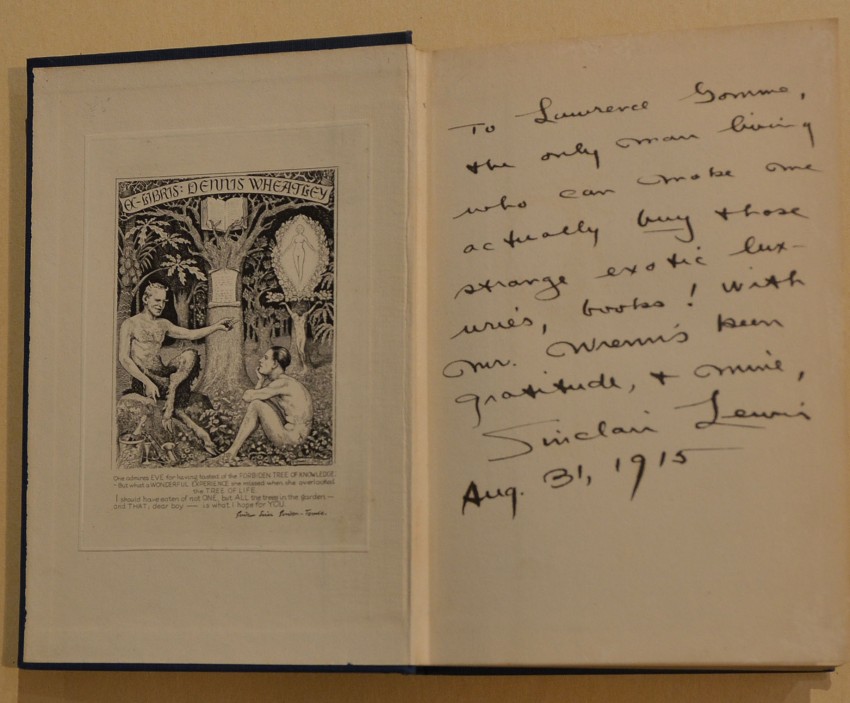 EX-LIBRIS: DENNIS WHEATLEY
One admires EVE for having tasted of the FORBIDEN TREE OF KNOWLEDGE
- But what a WONDERFUL EXPERIENCE she missed when she overlooked
the TREE OF LIFE.
I should have eaten of not ONE, but ALL the trees in the garden —
and THAT; dear boy — is what I hope for YOU.
To Lawrence Gomme,
the only man living
who can make me
actually buy those
strange exotic lux-
uries, books! With
Mr. Wrenn's keen
gratitude, & mine,
Sinclair Lewis
Aug. 31, 1915